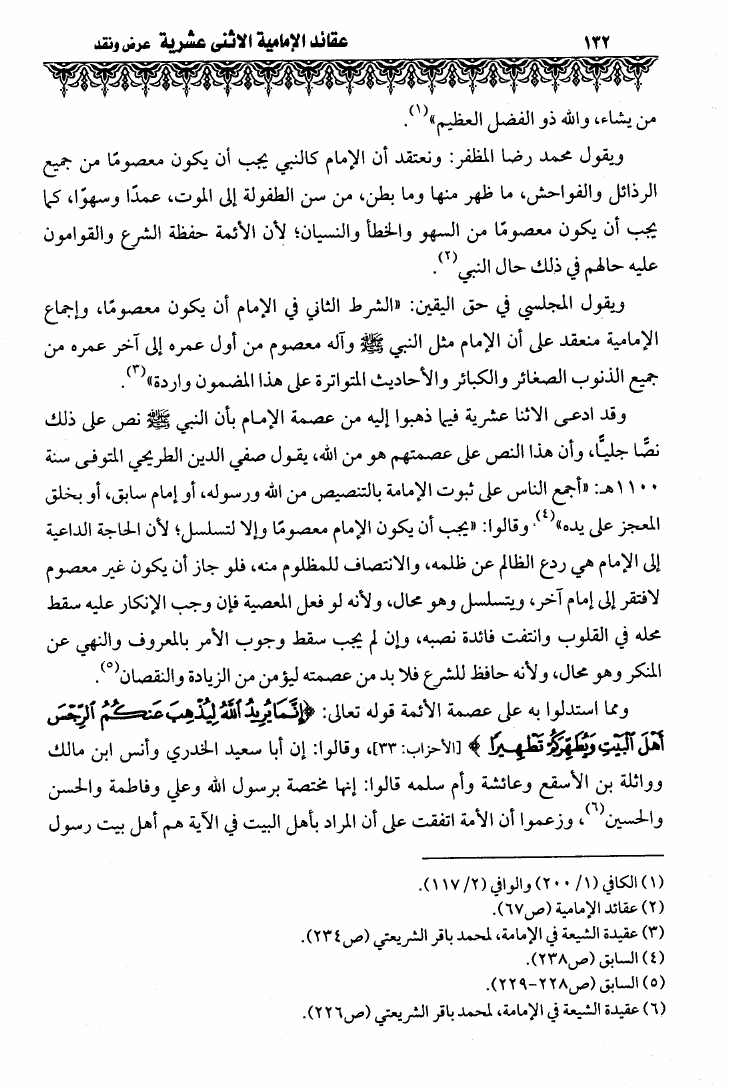 ١٣٢
عقائد الإمامية الاثنى عشرية عرض ونقد
من يشاء، والله ذو الفضل العظيم»(١).
ويقول محمد رضا المظفر: ونعتقد أن الإمام كالنبي يجب أن يكون معصومًا من جميع
الرذائل والفواحش، ما ظهر منها وما بطن، من سن الطفولة إلى الموت، عمدًا وسهوًا، كما
يجب أن يكون معصومًا من السهو والخطأ والنسيان؛ لأن الأئمة حفظة الشرع والقوامون
عليه حالهم في ذلك حال النبي(٢).
ويقول المجلسي في حق اليقين: «الشرط الثاني في الإمام أن يكون معصومًا، وإجماع
الإمامية منعقد على أن الإمام مثل النبي ﷺ وآله معصوم من أول عمره إلى آخر عمره من
جميع الذنوب الصغائر والكبائر والأحاديث المتواترة على هذا المضمون واردة»(٣).
وقد ادعى الاثنا عشرية فيما ذهبوا إليه من عصمة الإمام بأن النبي ﷺ نص على ذلك
نصًّا جليًّا، وأن هذا النص على عصمتهم هو من الله، يقول صفي الدين الطريحي المتوفى سنة
١١٠٠هـ: «أجمع الناس على ثبوت الإمامة بالتنصيص من الله ورسوله، أو إمام سابق، أو بخلق
المعجز على يده»(٤). وقالوا: «يجب أن يكون الإمام معصومًا وإلا لتسلسل؛ لأن الحاجة الداعية
إلى الإمام هي ردع الظالم عن ظلمه، والانتصاف للمظلوم منه، فلو جاز أن يكون غير معصوم
لافتقر إلى إمام آخر، ويتسلسل وهو محال، ولأنه لو فعل المعصية فإن وجب الإنكار عليه سقط
محله في القلوب وانتفت فائدة نصبه، وإن لم يجب سقط وجوب الأمر بالمعروف والنهي عن
المنكر وهو محال، ولأنه حافظ للشرع فلا بد من عصمته ليؤمن من الزيادة والنقصان(٥).
ومما استدلوا به على عصمة الأئمة قوله تعالى: ﴿إِنَّمَا يُرِيدُ اللَّهُ لِيُذْهِبَ عَنكُمُ الرِّجْسَ
أَهْلَ الْبَيْتِ وَيُطَهِّرَكُمْ تَطْهِيرًا﴾ [الأحزاب: ٣٣]، وقالوا: إن أبا سعيد الخدري وأنس ابن مالك
وواثلة بن الأسقع وعائشة وأم سلمه قالوا: إنها مختصة برسول الله وعلي وفاطمة والحسن
والحسين(٦)، وزعموا أن الأمة اتفقت على أن المراد بأهل البيت في الآية هم أهل بيت رسول
(١) الكافي (١/ ٢٠٠) والوافي (٢/ ١١٧).
(٢) عقائد الإمامية (ص٦٧).
(٣) عقيدة الشيعة في الإمامة، لمحمد باقر الشريعتي (ص٢٣٤).
(٤) السابق (ص٢٣٨).
(٥) السابق (ص٢٢٨-٢٢٩).
(٦) عقيدة الشيعة في الإمامة، لمحمد باقر الشريعتي (ص٢٢٦).